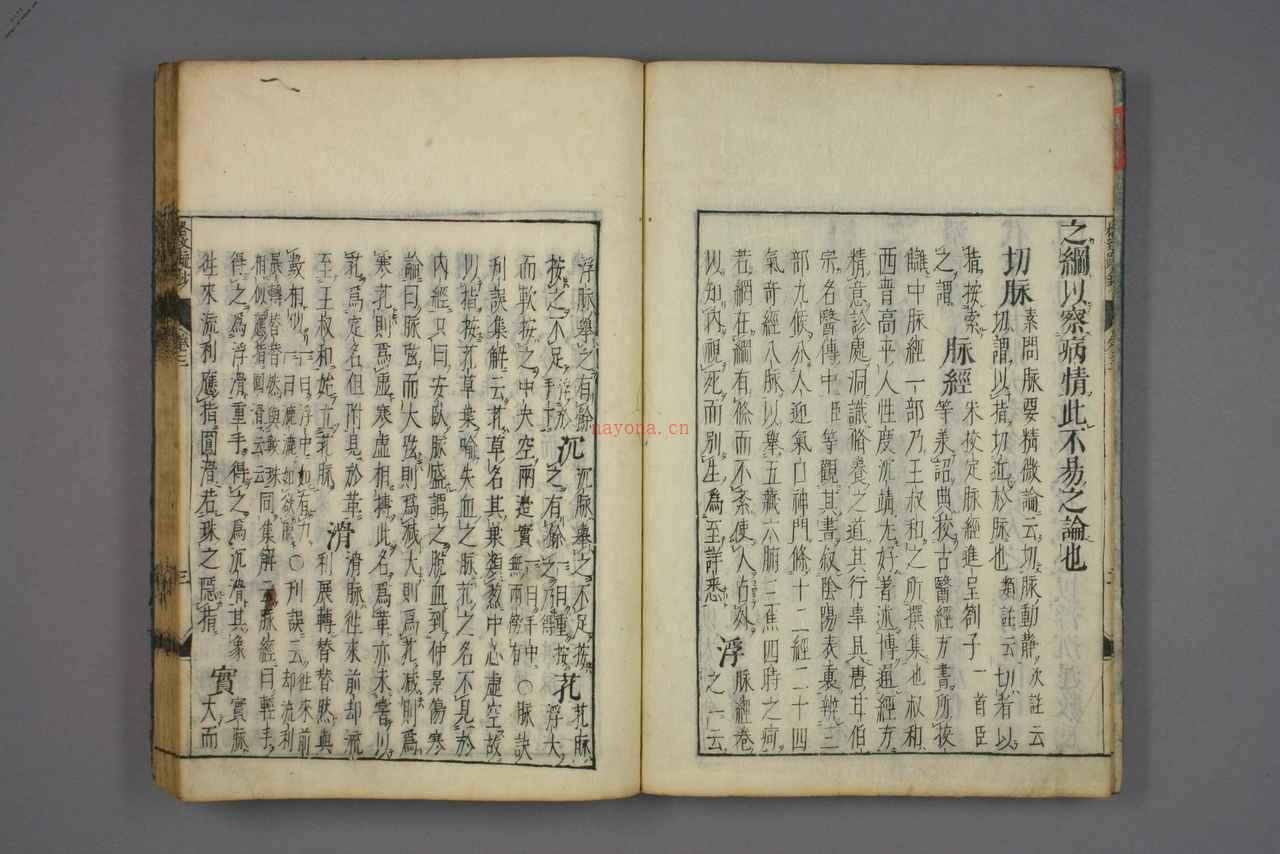 之綱以察病情此不易之論也
切脉 素問脉要精微論云切脉動靜 次註云
切謂以指切近於脉也 類註云切者以
指按索
之謂 脉經 朱校定脉經進呈劄子 一首臣
等羙詔典校古醫經方書所挍
讎中脉經一部乃王叔和之所撰集也叔和
西晋高平人性度沉靖尤好著述博通經方
精意診處洞識脩養之道其行事具唐甘伯
宗名醫傳中臣等觀其書叙陰陽表裏辨三
部九候分人迎氣口神門條十二經二十四
氣奇經八脉以舉五藏六腑三焦四時之痾
若網在綱有條而不紊使人占外
以知内視死而別生爲至詳悉 浮 脉經卷
之一云
浮脉舉之有餘
按之不足 沉 沉脉舉之不足按
之有餘一曰重按
之乃得 芤 芤脉
浮大
而軟按之中央空兩邊實 一曰手中
無兩傍有 〇脉訣
刋誤集解云芤草名其葉類葱中心虚空故
以指按芤草葉喻失血之脉芤之名不見於
内經只曰安臥脉盛謂之脫血到仲景傷寒
論曰脉弦而大弦則爲減大則爲芤減則爲
寒芤則爲虚寒虚相搏此名爲革亦未嘗以
芤爲定名但附見於革
至王叔和始立芤脉 滑 滑脉往來前却流
利展轉替替然與
數相似 一曰浮中如有力
一曰漉漉如欲脫 〇刋誤云却流利
展轉替替然與數珠
相似應指圓滑云云 同集解云脉經曰輕手
得之爲浮滑重手得之爲沉滑其象
往來流利應指圓滑若珠之隱指 實 實脉
大而
nayona.cn